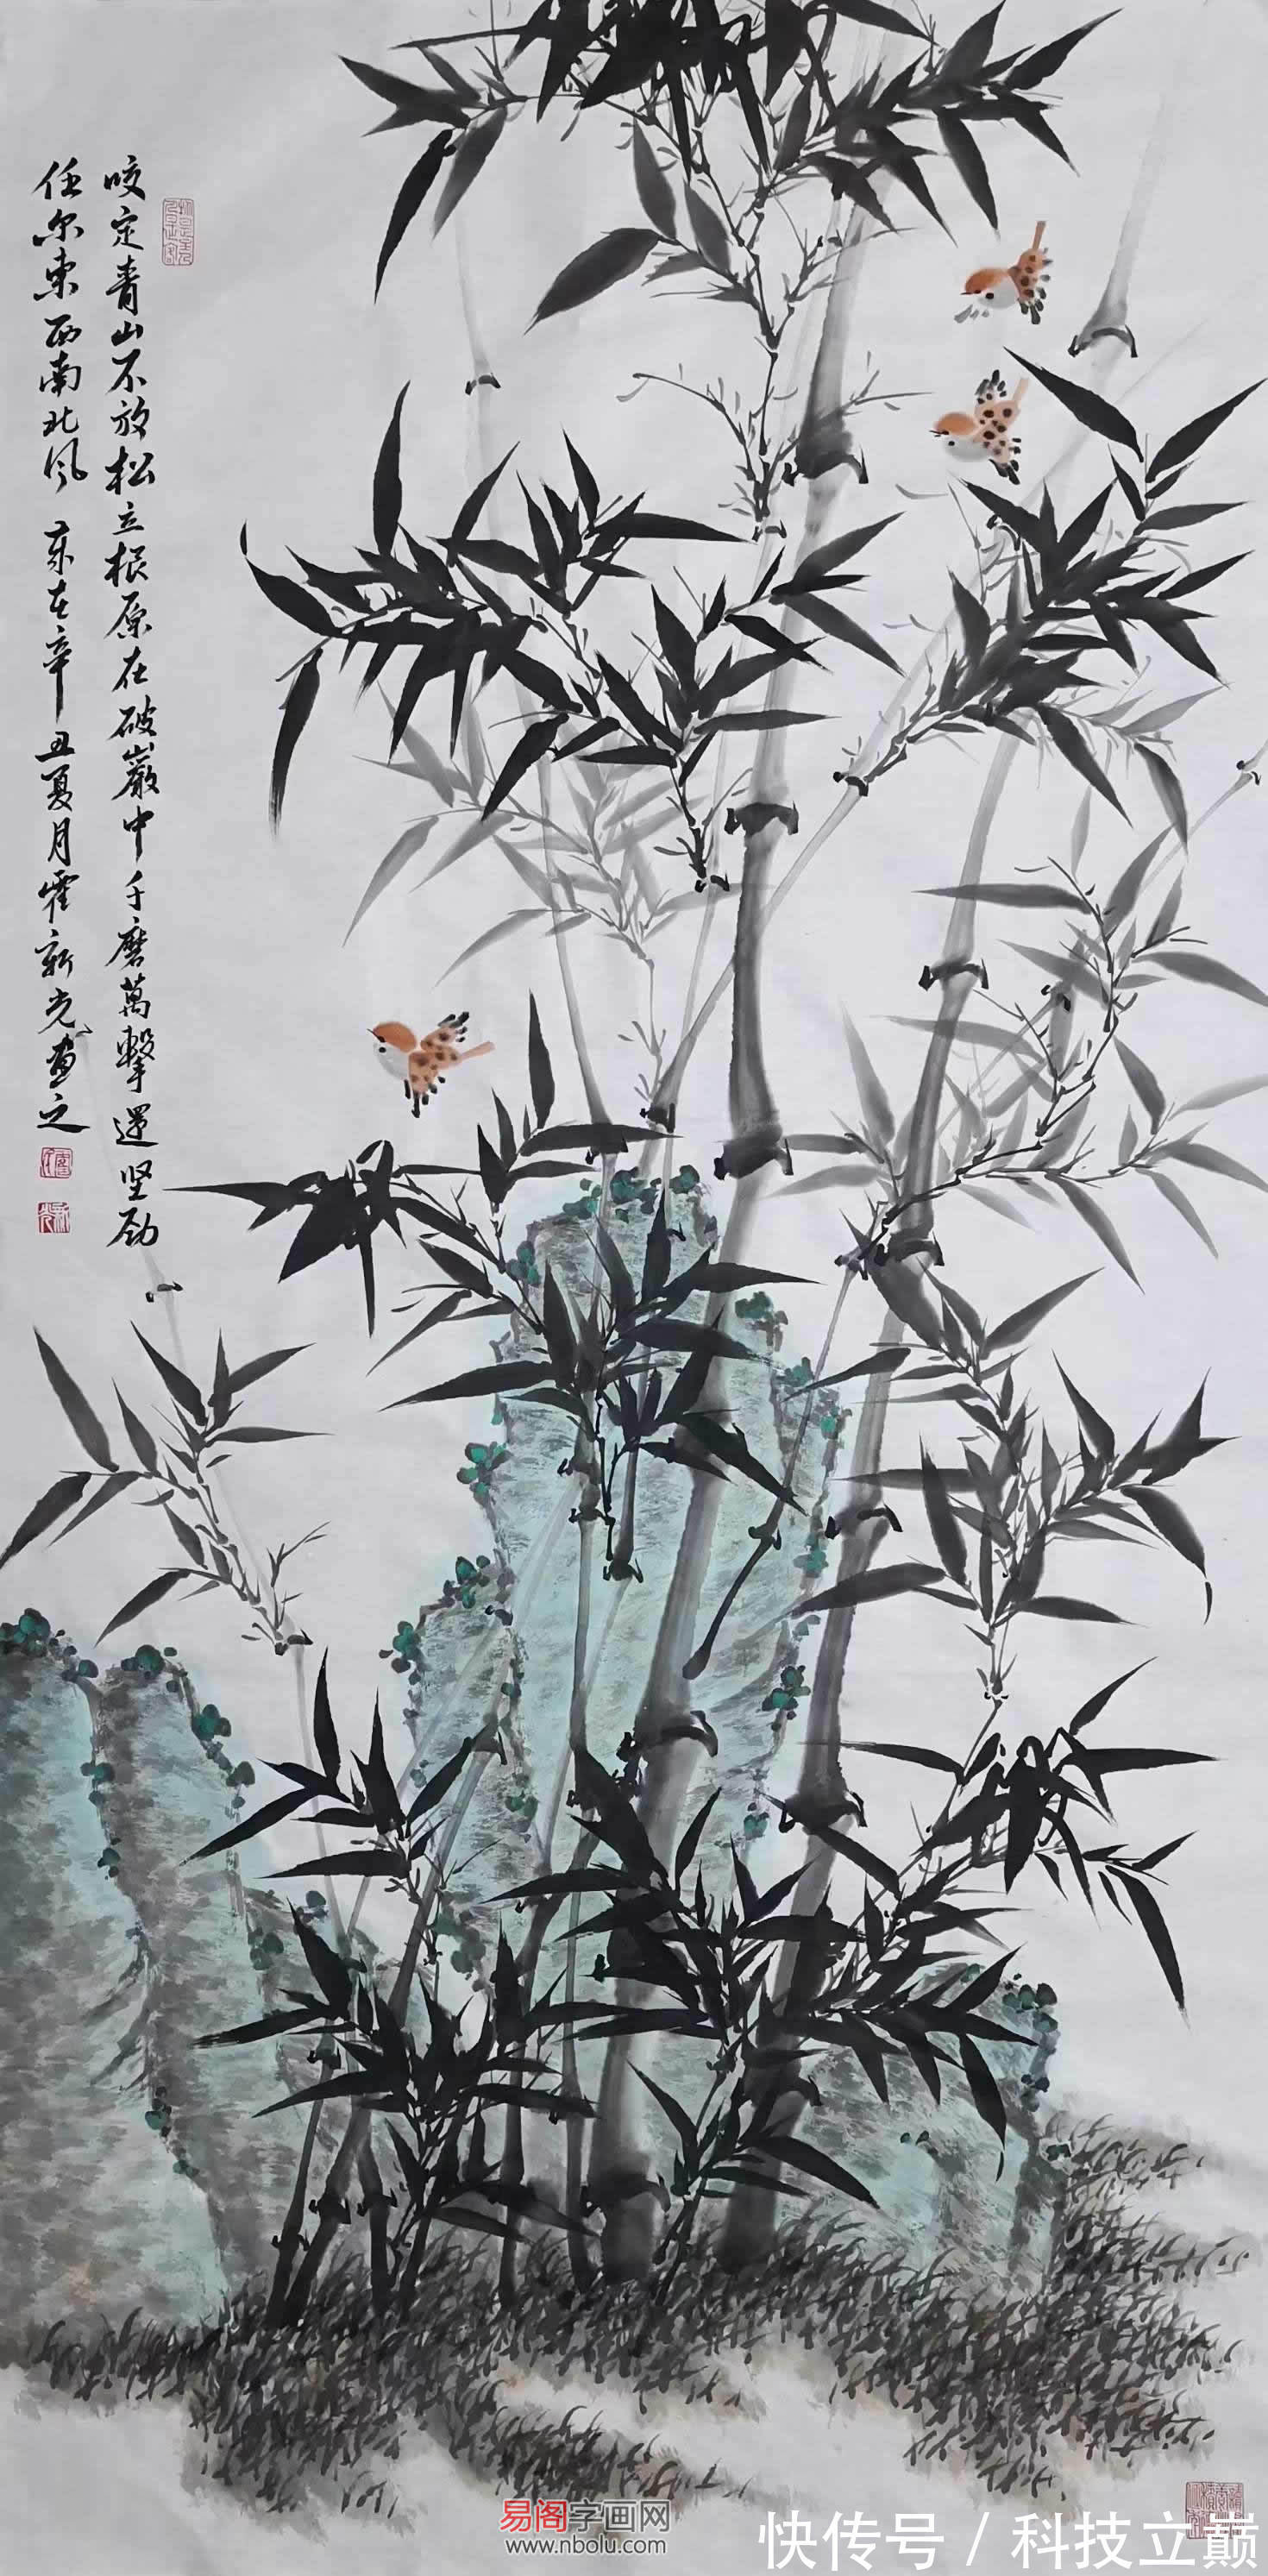 咬定青山不放松立根原在破巖中千磨萬擊還坚劲
任尔東西南北风 岁在辛丑夏月霍新光画之
易阁字画网
www.nbolu.com
快传号 / 科技立巅